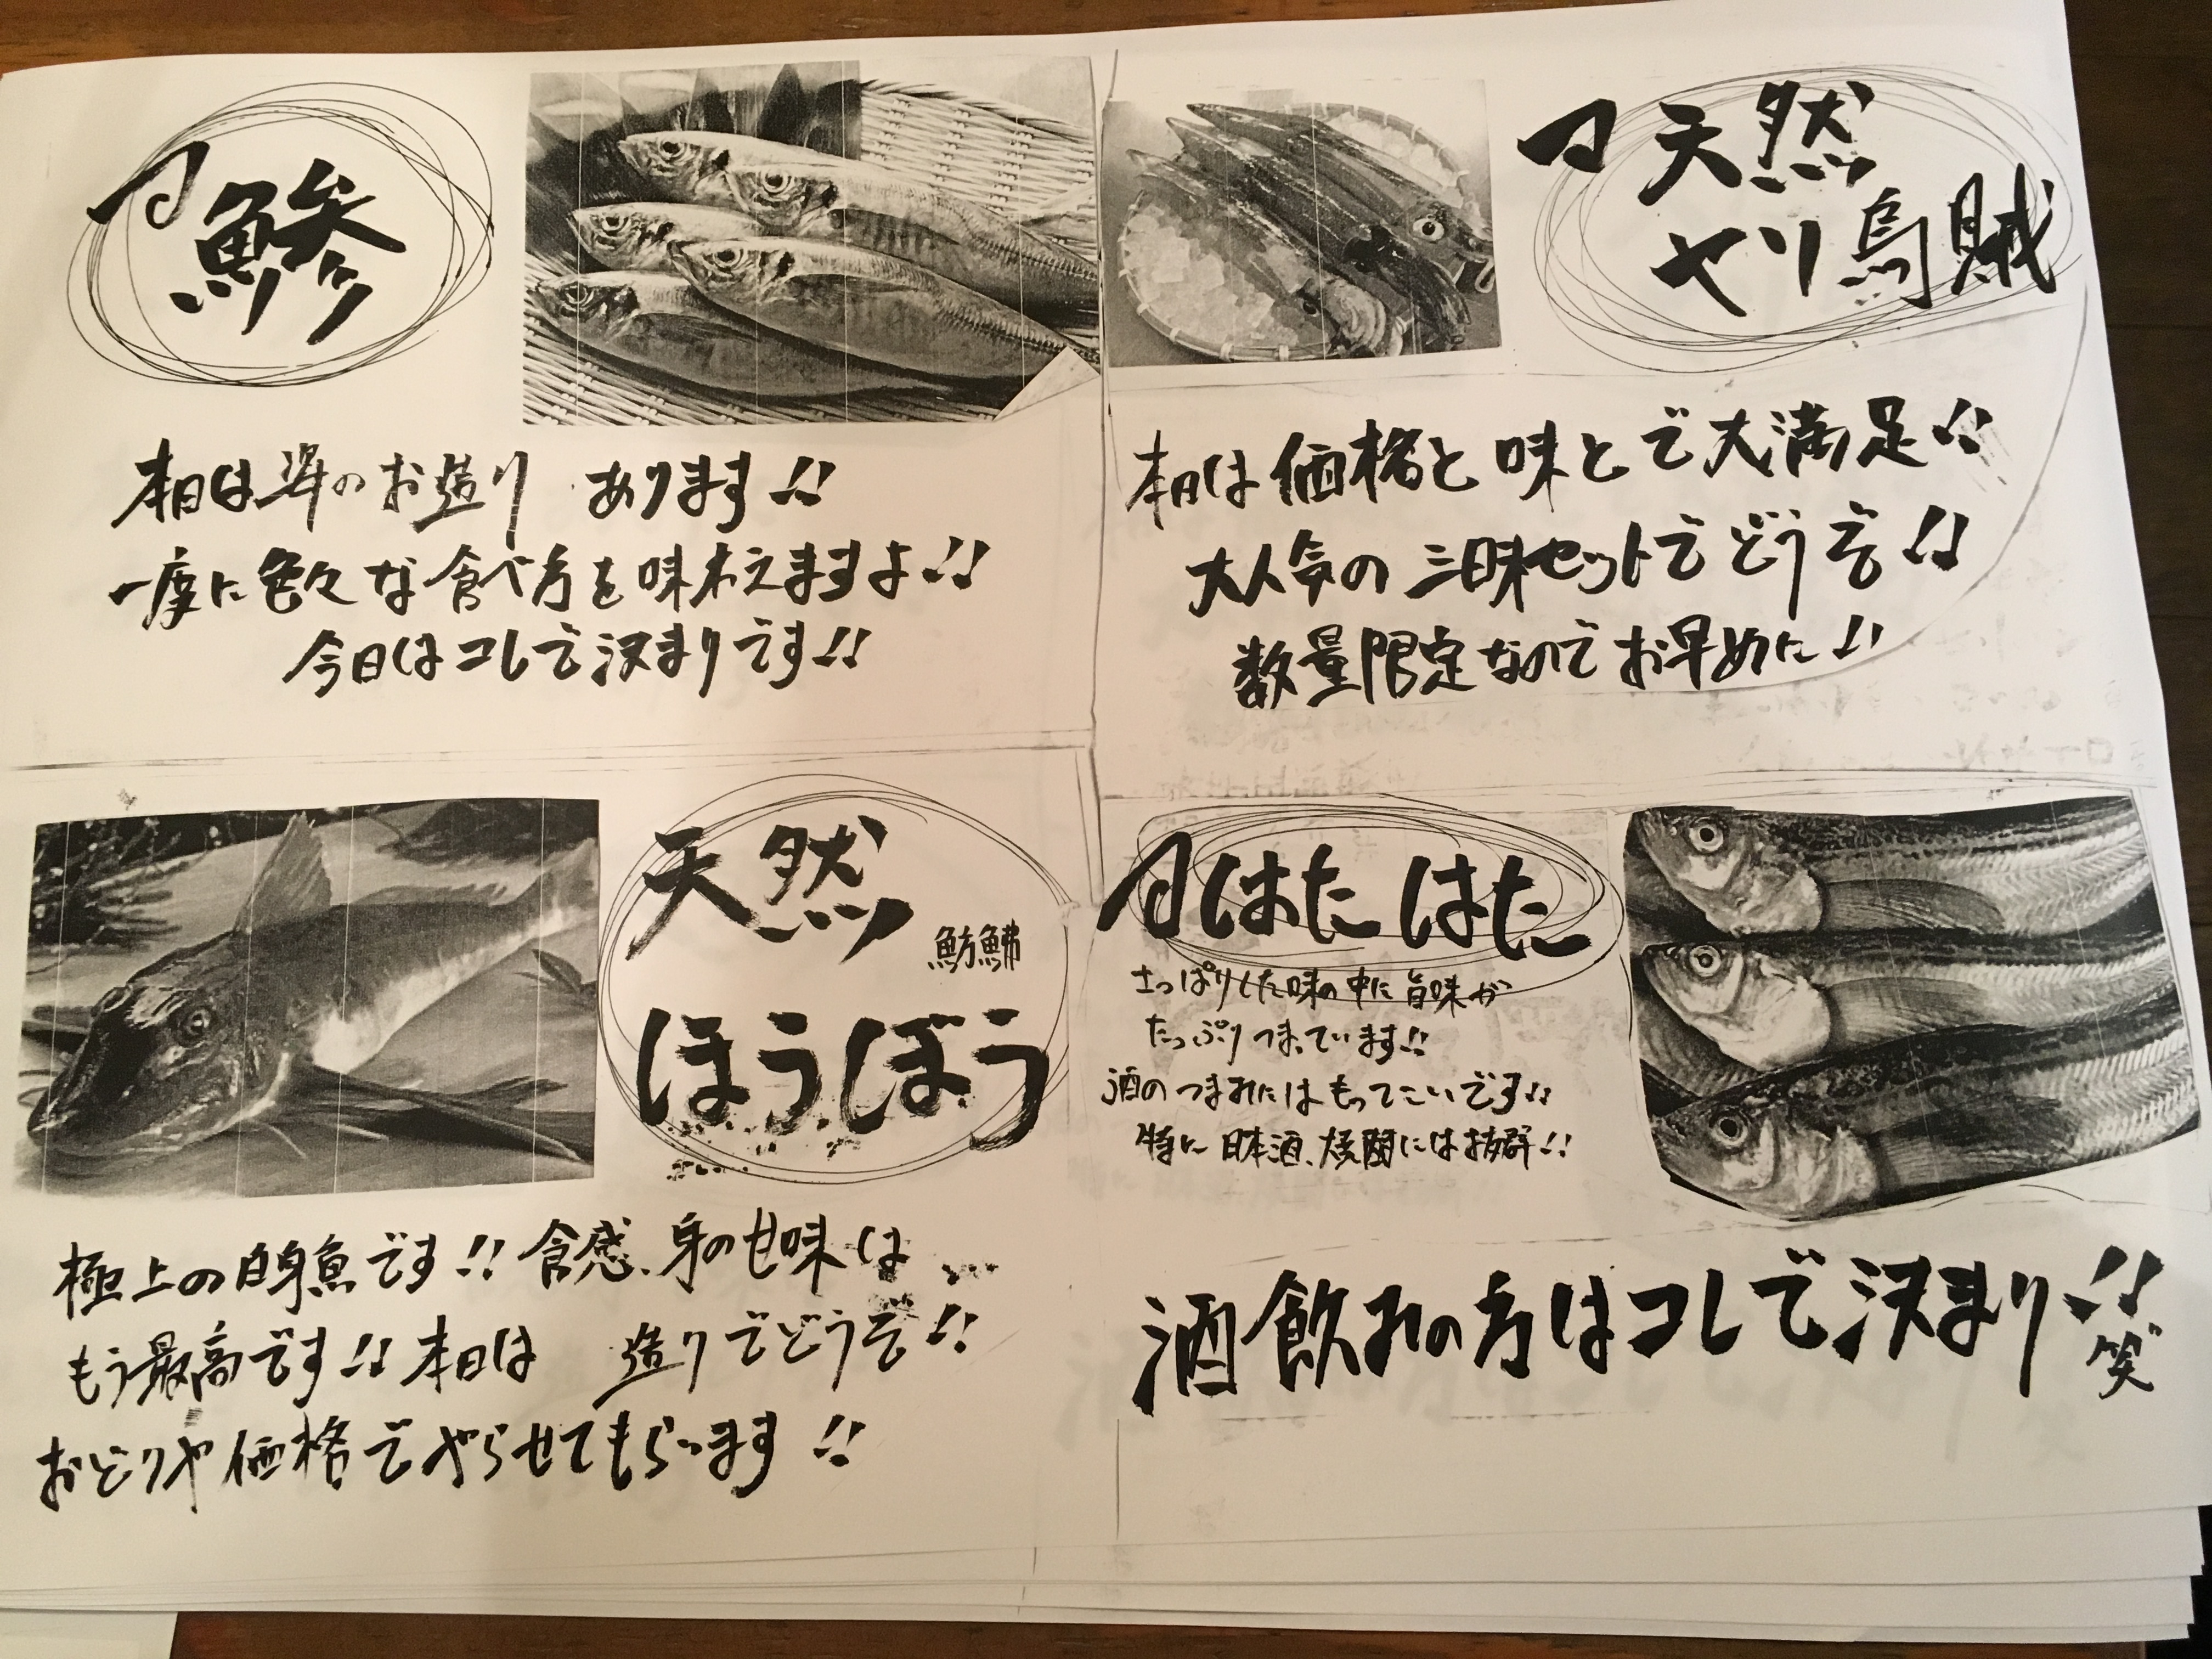 鯵
本日は 姿のお造り あります!!
一度に色々な食べ方を味わえますよ!!
今日はコレで決まりです!!
天然
ヤリ烏賊
本日は価格と味とで大満足!!
大人気の三味セットでどうぞ!!
数量限定なのでお早めに!!
天然
魴鮄
ほうぼう
極上の白身魚です!! 食感、身の甘味は
もう最高です!! 本日は 造りでどうぞ!!
おどりや価格でやらせてもらってます!!
はたはた
さっぱりした味の中に旨味が
たっぷりつまっています!!
酒のつまみにはもってこいです!!
特に日本酒、焼酎には抜群!!
酒飲みの方はコレで決まり!!
笑